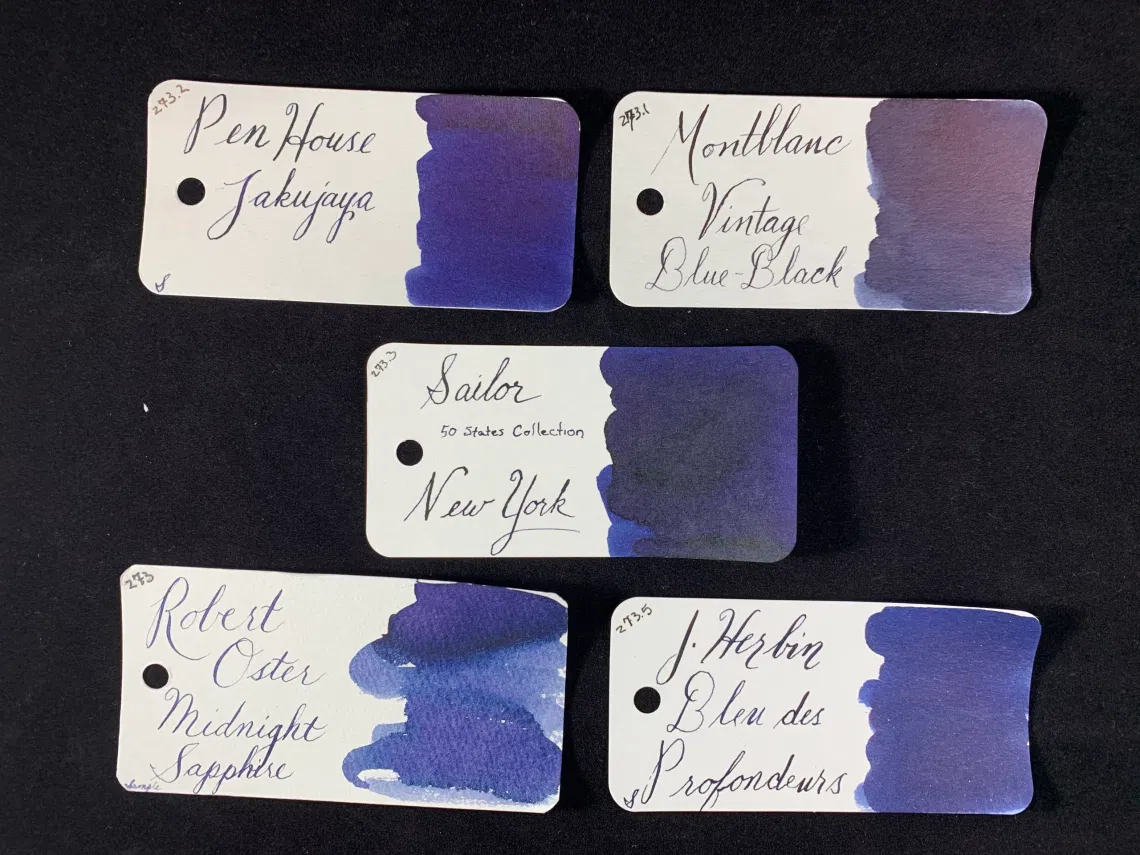 273.2
Pen House
Jakujaya
S
273.1
Montblanc
Vintage
Blue-Black
273.3
Sailor
50 States Collection
New York
273
Robert
Oster
Midnight
Sapphire
Sample
273.5
J. Herbin
Bleu des
Profondeurs
S